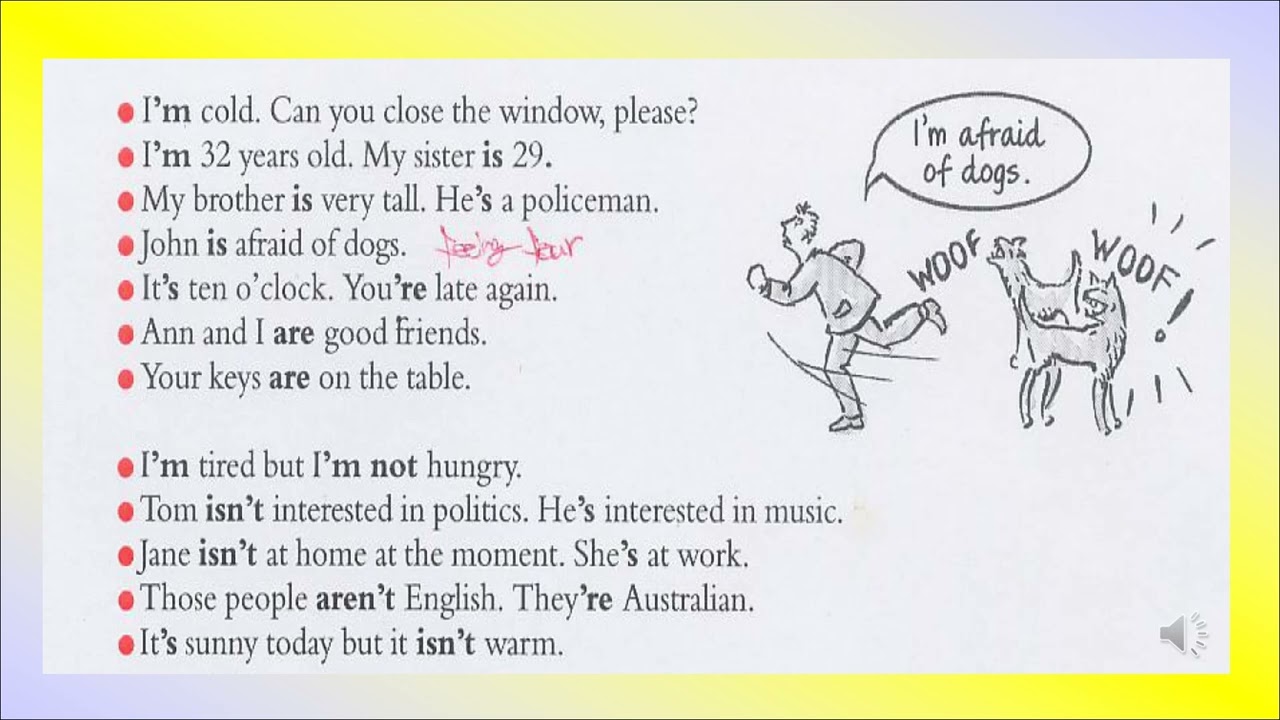 I'm cold. Can you close the window, please?
I'm 32 years old. My sister is 29.
My brother is very tall. He's a policeman.
John is afraid of dogs. feeing fear
It's ten o'clock. You're late again.
Ann and I are good friends.
Your keys are on the table.
I'm tired but I'm not hungry.
Tom isn't interested in politics. He's interested in music.
Jane isn't at home at the moment. She's at work.
Those people aren't English. They're Australian.
It's sunny today but it isn't warm.
I'm afraid
of dogs.
WOOF
WOOF!